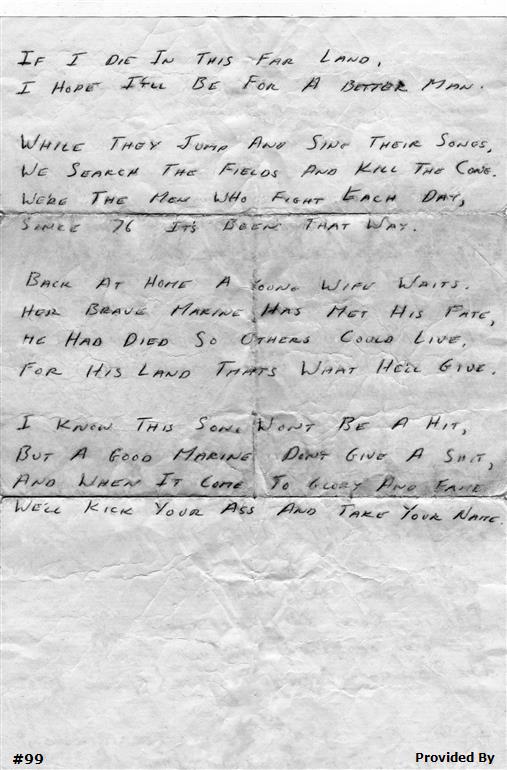 If I Die In This Far Land,
I Hope It'll Be For A Better Man.
While They Jump And Sing Their Songs,
We Search The Fields And Kill The Cong.
We're The Men Who Fight Each Day,
Since 76 It's Been That Way.
Back At Home A Young Wife Waits.
Her Brave Marine Has Met His Fate,
He Had Died So Others Could Live,
For His Land Thats What He'll Give.
I Know This Song Wont Be A Hit,
But A Good Marine Dont Give A Shit,
And When It Come To Glory And Fame
We'll Kick Your Ass And Take Your Name.
#99
Provided By